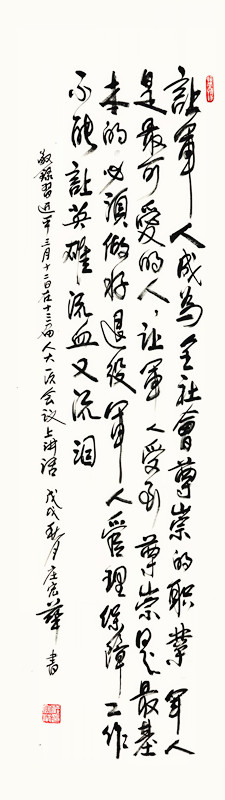 让軍人成為全社會尊崇的职業軍人
是最可愛的人，让軍人受到尊崇是最基
本的必須做好退役軍人管理保障工作
不能让英雄流血又流泪
敬錄習近平三月十二日在十三届人大一次会议上讲话 戊戌月庄華書